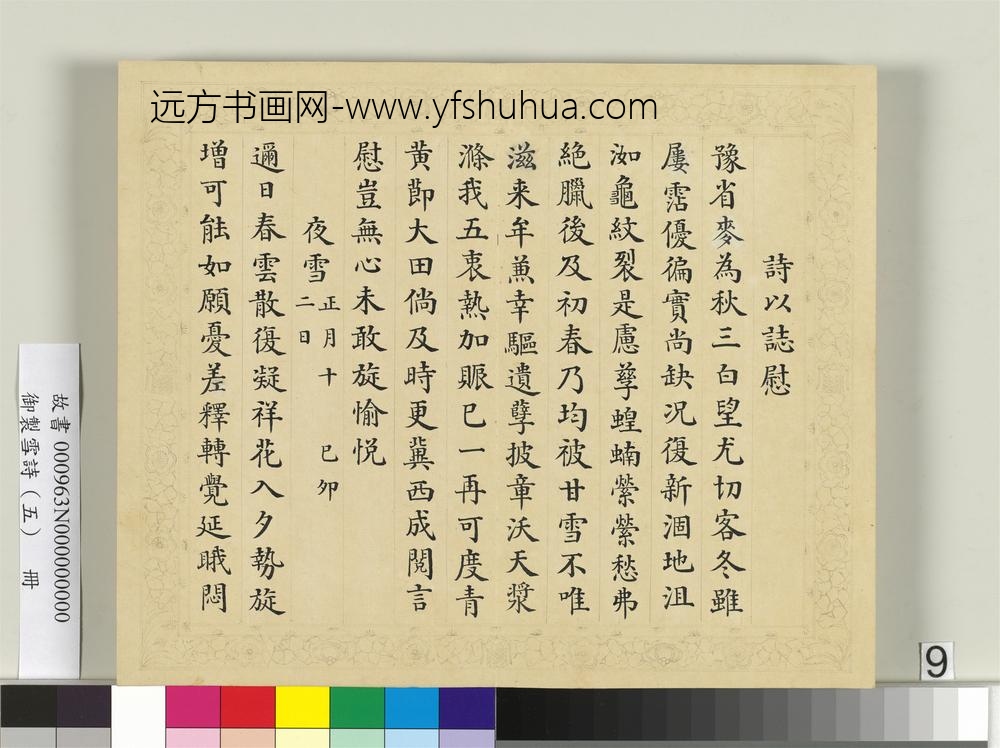 远方书画网-www.yfshuhua.com
詩以誌慰
豫省麥為秋三白望尤切客冬雖
屢霑優徧實尚缺况復新涸地沮
洳龜紋裂是慮孳蝗蝻縈縈愁弗
絶臘後及初春乃均被甘雪不唯
滋来牟蒹幸驅遺孽披章沃天漿
滌我五衷熱加賑已一再可度青
黄卽大田倘及時更冀西成閲言
慰豈無心未敢旋愉悦
夜雪 正月十二日 己卯
邇日春雲散復凝祥花入夕勢旋
增可能如願憂差釋轉覺延哦悶
故書 000963N000000000
御製雪詩（五） 冊
9